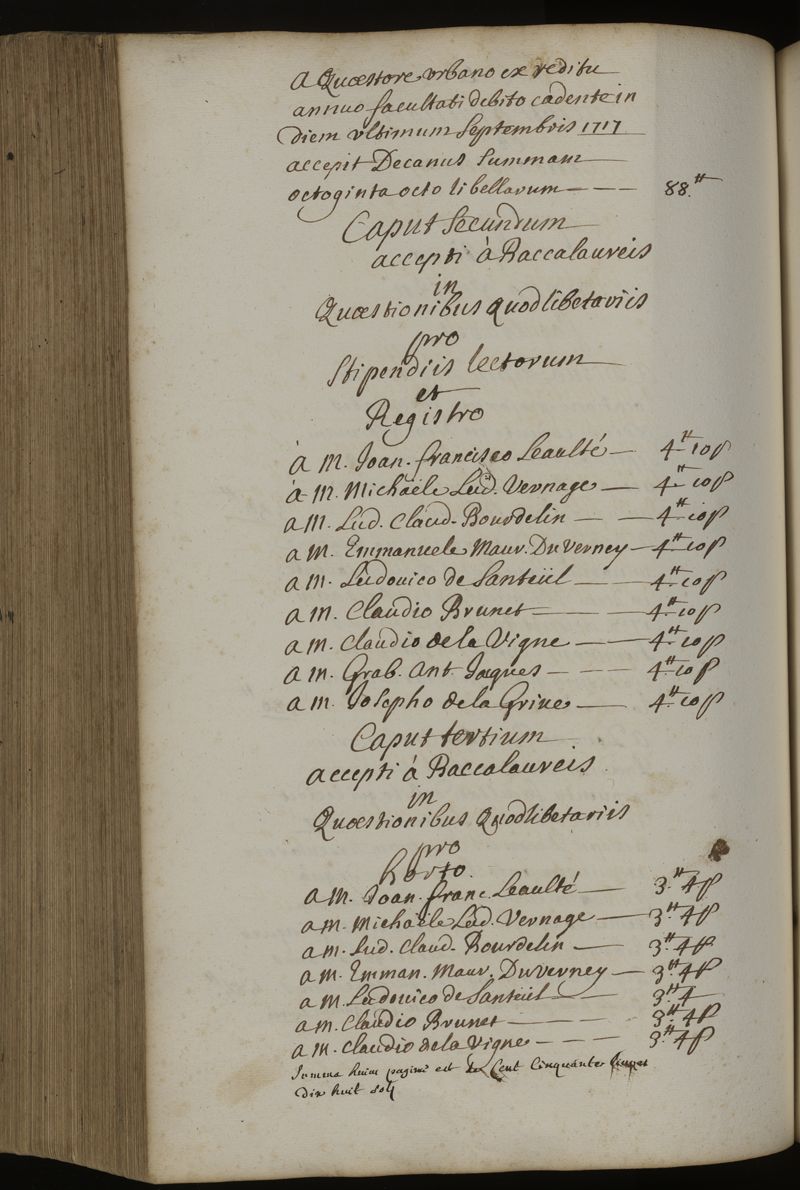 A Quæstore urbano ex reditu
annuo facultati debito cadente in
Diem ultimum Septembris 1717
accepit Decanus Summam
octoginta octo libellarum - - - 88.tt
Caput Secundum
accepti à Baccalaureis
in
Quæstionibus quodlibetariis
pro
Stipendiis lectorum
et
Registro
à M. Joan. francisco Leaulté - 4tt 10ß
à M. Michaële Lud. Vernage - 4tt 10ß
a M. Lud. Claud. Bourdelin - - 4tt 10ß
a M. Emmanuele Maur. Du Verney - 4tt 10ß
a M. Ludovico de Santeüil - - 4tt 10ß
a M. Claudio Brunet - - 4tt 10ß
a M. Claudio de la Vigne - - 4tt 10ß
a M. Grab. Ant. Jaques - - - 4tt 10ß
a M. Josepho de la Grive - - 4tt 10ß
Caput tertium
accepti à Baccalaureis
in
Quæstionibus Quodlibetariis
pro
horto.
a M. Joan. franc. Leaulté - 3tt 4ß
a M. Michaële Lud. Vernage - 3tt 4ß
a M. Lud. Claud. Bourdelin - 3tt 4ß
a M. Emman. Maur. Du Verney - 3tt 4ß
a M. Ludovico de Santeüil - - 3tt 4
a M. Claudio Brunet - - - 3tt 4ß
a M. Claudio de la Vigne - - - 3tt 4ß
Summa huius paginæ est Cent Cinquante Livres
Dix huit sols